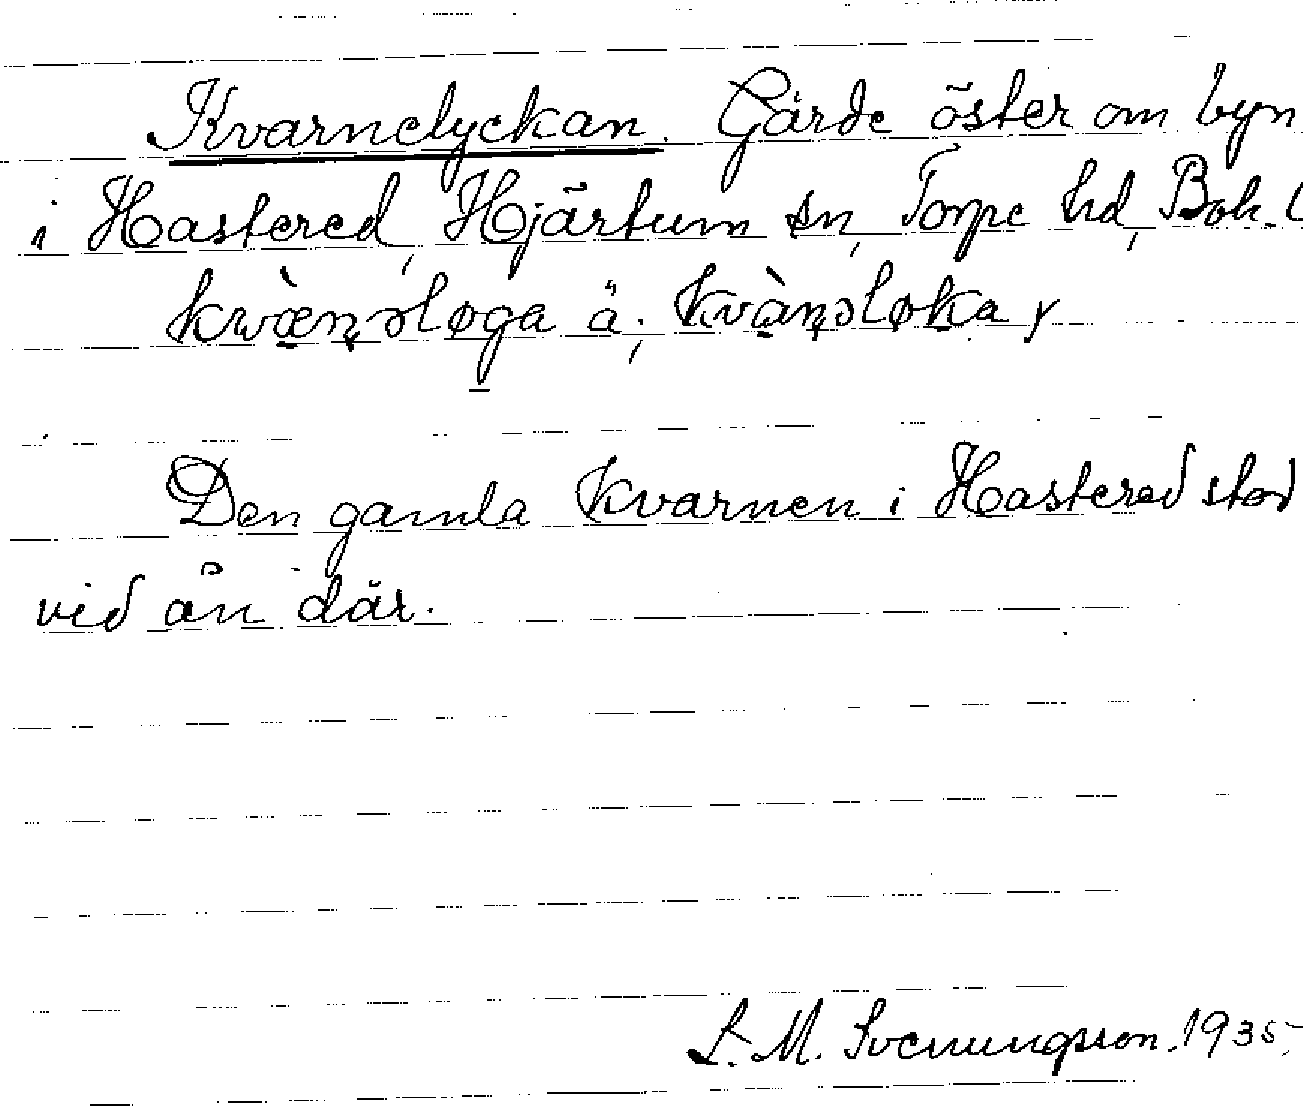 Kvarnelyckan. Gärde öster om byn
i Hastered, Hjärtum sn, Torpe hd, Boh. l
kwæ̀nəløga ä; kvànəløka,
Den gamla kvarnen i Hastered stod
vid ån där.
S. M. Svenungsson. 1935.